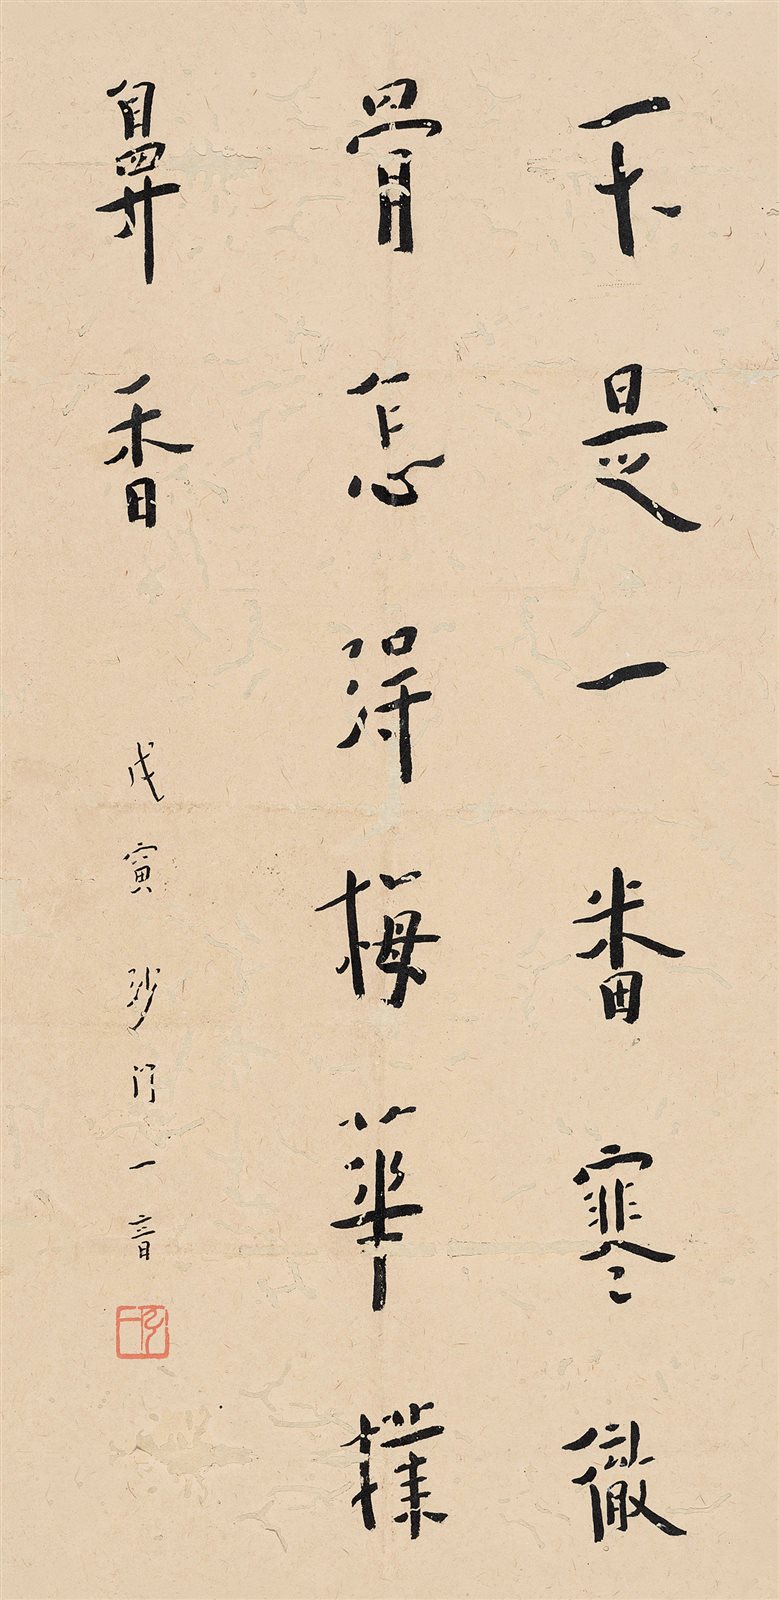 不是一番寒徹
骨怎得梅華撲
鼻香
戊寅沙門一音